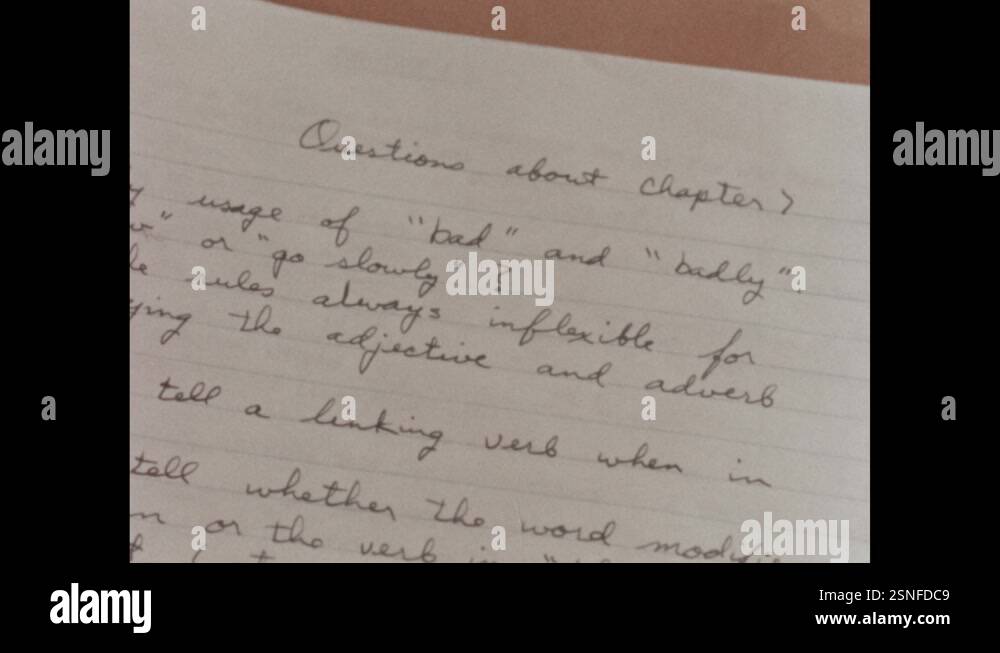 Questions about chapter 7
usage of "bad" and "badly".
" or "go slowly" ?
rules always inflexible for
ying the adjective and adverb
tell a linking verb when in
tell whether the word modifi
n or the verb in "
alamy
alamy
Image ID: 2SNFDC9
www.alamy.com